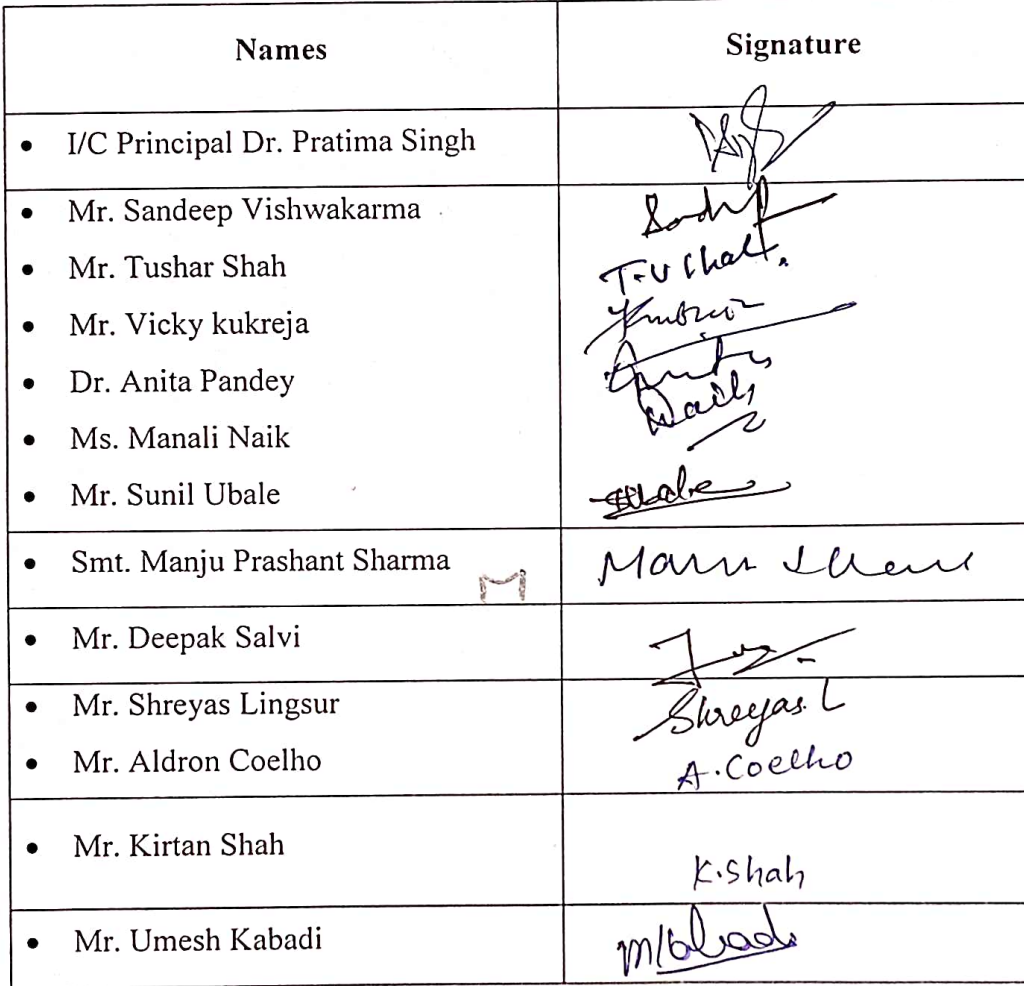 Names Signature
• I/C Principal Dr. Pratima Singh
• Mr. Sandeep Vishwakarma
• Mr. Tushar Shah T.U Shah.
• Mr. Vicky kukreja
• Dr. Anita Pandey
• Ms. Manali Naik Naik
• Mr. Sunil Ubale
• Smt. Manju Prashant Sharma
• Mr. Deepak Salvi
• Mr. Shreyas Lingsur Shreyas. L
• Mr. Aldron Coelho A. Coelho
• Mr. Kirtan Shah K. Shah
• Mr. Umesh Kabadi